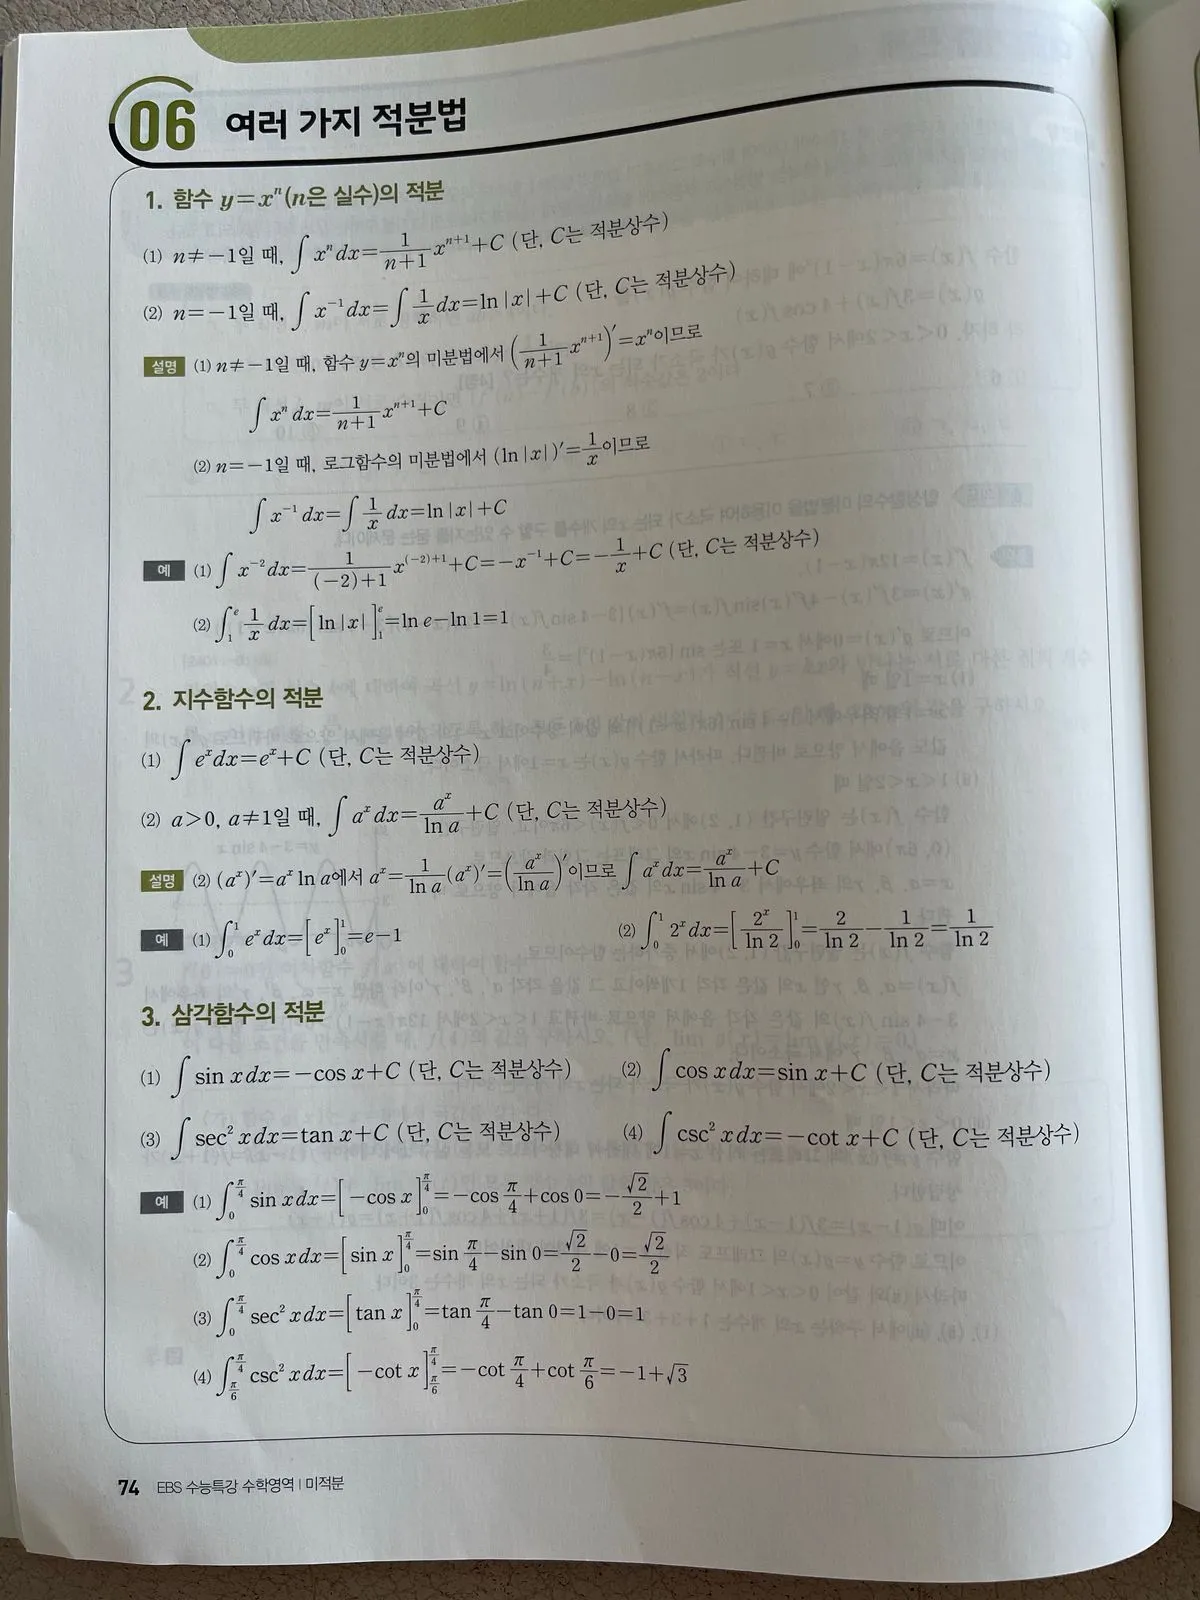 06 여러 가지 적분법
1. 함수 y=xⁿ(n은 실수)의 적분
(1) n≠−1일 때, ∫ xⁿ dx=\frac{1}{n+1}xⁿ⁺¹+C (단, C는 적분상수)
(2) n=−1일 때, ∫ x⁻¹dx=∫ \frac{1}{x}dx=ln|x|+C (단, C는 적분상수)
설명 (1) n≠−1일 때, 함수 y=xⁿ의 미분법에서 (\frac{1}{n+1}xⁿ⁺¹)′=xⁿ이므로
∫ xⁿ dx=\frac{1}{n+1}xⁿ⁺¹+C
(2) n=−1일 때, 로그함수의 미분법에서 (ln|x|)′=\frac{1}{x}이므로
∫ x⁻¹ dx=∫ \frac{1}{x} dx=ln|x|+C
예 (1) ∫ x⁻²dx=\frac{1}{(−2)+1}x^{(−2)+1}+C=−x⁻¹+C=−\frac{1}{x}+C (단, C는 적분상수)
(2) ∫_{1}^{e} \frac{1}{x} dx=[ln|x|]_{1}^{e}=ln e−ln 1=1
2. 지수함수의 적분
(1) ∫ eˣdx=eˣ+C (단, C는 적분상수)
(2) a>0, a≠1일 때, ∫ aˣ dx=\frac{aˣ}{ln a}+C (단, C는 적분상수)
설명 (2) (aˣ)′=aˣ ln a에서 aˣ=\frac{1}{ln a}(aˣ)′=(\frac{aˣ}{ln a})′이므로 ∫ aˣ dx=\frac{aˣ}{ln a}+C
예 (1) ∫_{0}^{1} eˣ dx=[eˣ]_{0}^{1}=e−1 (2) ∫_{0}^{1} 2ˣ dx=[\frac{2ˣ}{ln 2}]_{0}^{1}=\frac{2}{ln 2}−\frac{1}{ln 2}=\frac{1}{ln 2}
3. 삼각함수의 적분
(1) ∫ sin x dx=−cos x+C (단, C는 적분상수) (2) ∫ cos x dx=sin x+C (단, C는 적분상수)
(3) ∫ sec² x dx=tan x+C (단, C는 적분상수) (4) ∫ csc² x dx=−cot x+C (단, C는 적분상수)
예 (1) ∫_{0}^{\frac{π}{4}} sin x dx=[−cos x]_{0}^{\frac{π}{4}}=−cos \frac{π}{4}+cos 0=−\frac{√2}{2}+1
(2) ∫_{0}^{\frac{π}{4}} cos x dx=[sin x]_{0}^{\frac{π}{4}}=sin \frac{π}{4}−sin 0=\frac{√2}{2}−0=\frac{√2}{2}
(3) ∫_{0}^{\frac{π}{4}} sec² x dx=[tan x]_{0}^{\frac{π}{4}}=tan \frac{π}{4}−tan 0=1−0=1
(4) ∫_{\frac{π}{6}}^{\frac{π}{4}} csc² x dx=[−cot x]_{\frac{π}{6}}^{\frac{π}{4}}=−cot \frac{π}{4}+cot \frac{π}{6}=−1+√3
74 EBS 수능특강 수학영역 | 미적분